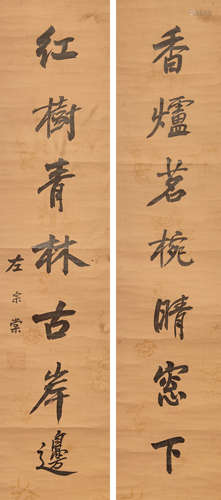 香爐茗椀晴窓下
紅樹青林古岸邊
左宗棠